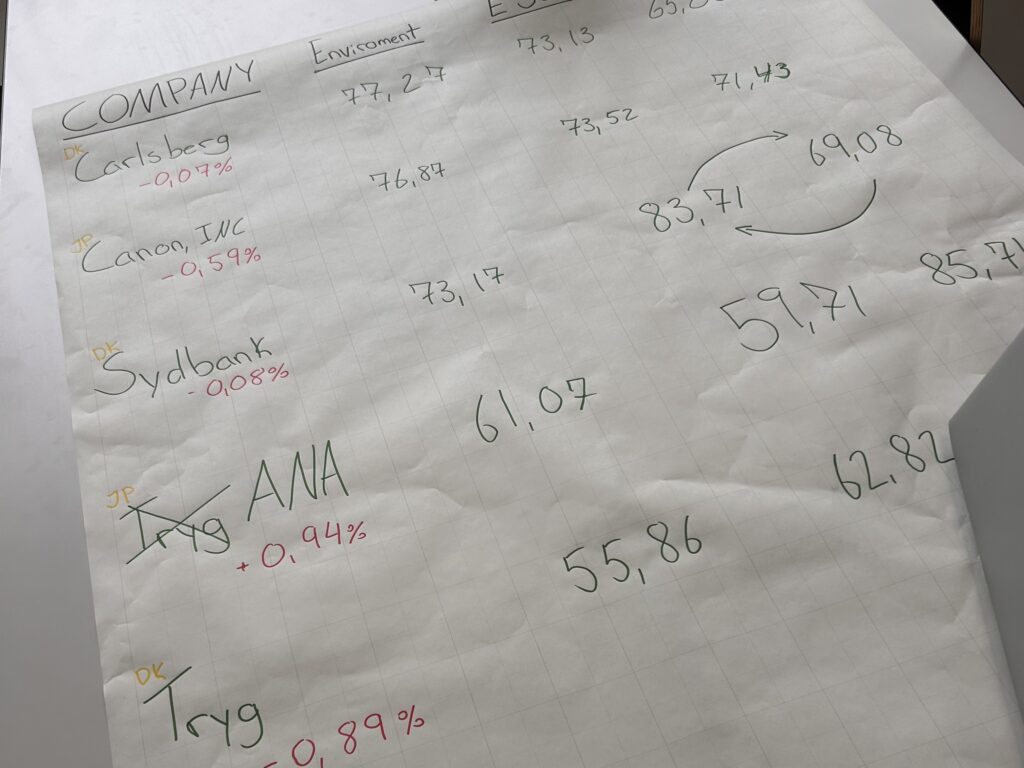 COMPANY Enviroment
DK
Carlsberg 77,27 73,13
-0,07%
JP
Canon, INC 76,87 73,52 71,43
-0,59%
DK
Sydbank 73,17 83,71 69,08
-0,08%
JP
Tryg ANA 61,07 59,71 85,71
+0,94%
DK
Tryg 55,86 62,82
-0,89%